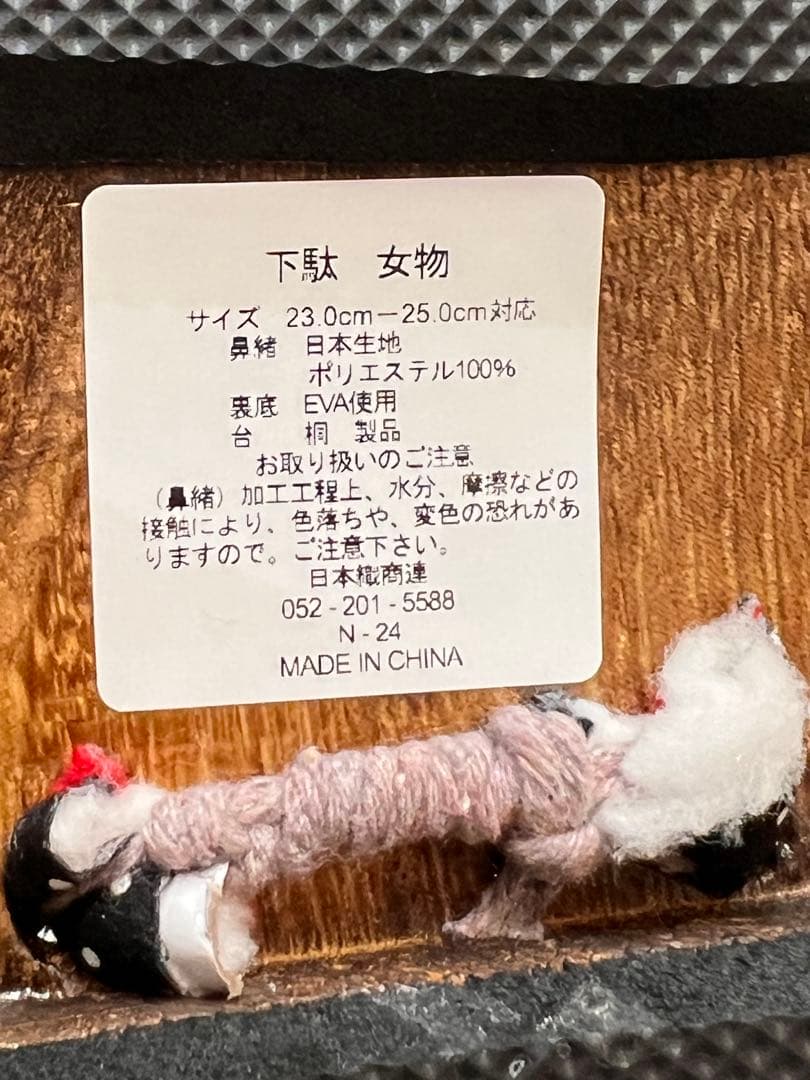 下駄 女物
サイズ 23.0cm－25.0cm対応
鼻緒 日本生地
ポリエステル100%
裏底 EVA使用
台 桐 製品
お取り扱いのご注意
（鼻緒）加工工程上、水分、摩擦などの
接触により、色落ちや、変色の恐れがあ
りますので。ご注意下さい。
日本織商連
052-201-5588
N-24
MADE IN CHINA